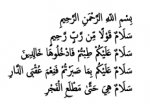 بِسْمِ اللَّهِ الرَّحْمَنِ الرَّحِيمِ
سَلَامٌ قَوْلًا مِنْ رَبٍّ رَحِيمٍ
سَلَامٌ عَلَيْكُمْ طِبْتُمْ فَادْخُلُوهَا خَالِدِينَ
سَلَامٌ عَلَيْكُمْ بِمَا صَبَرْتُمْ فَنِعْمَ عُقْبَى الدَّارِ
سَلَامٌ هِيَ حَتَّى مَطْلَعِ الْفَجْرِ